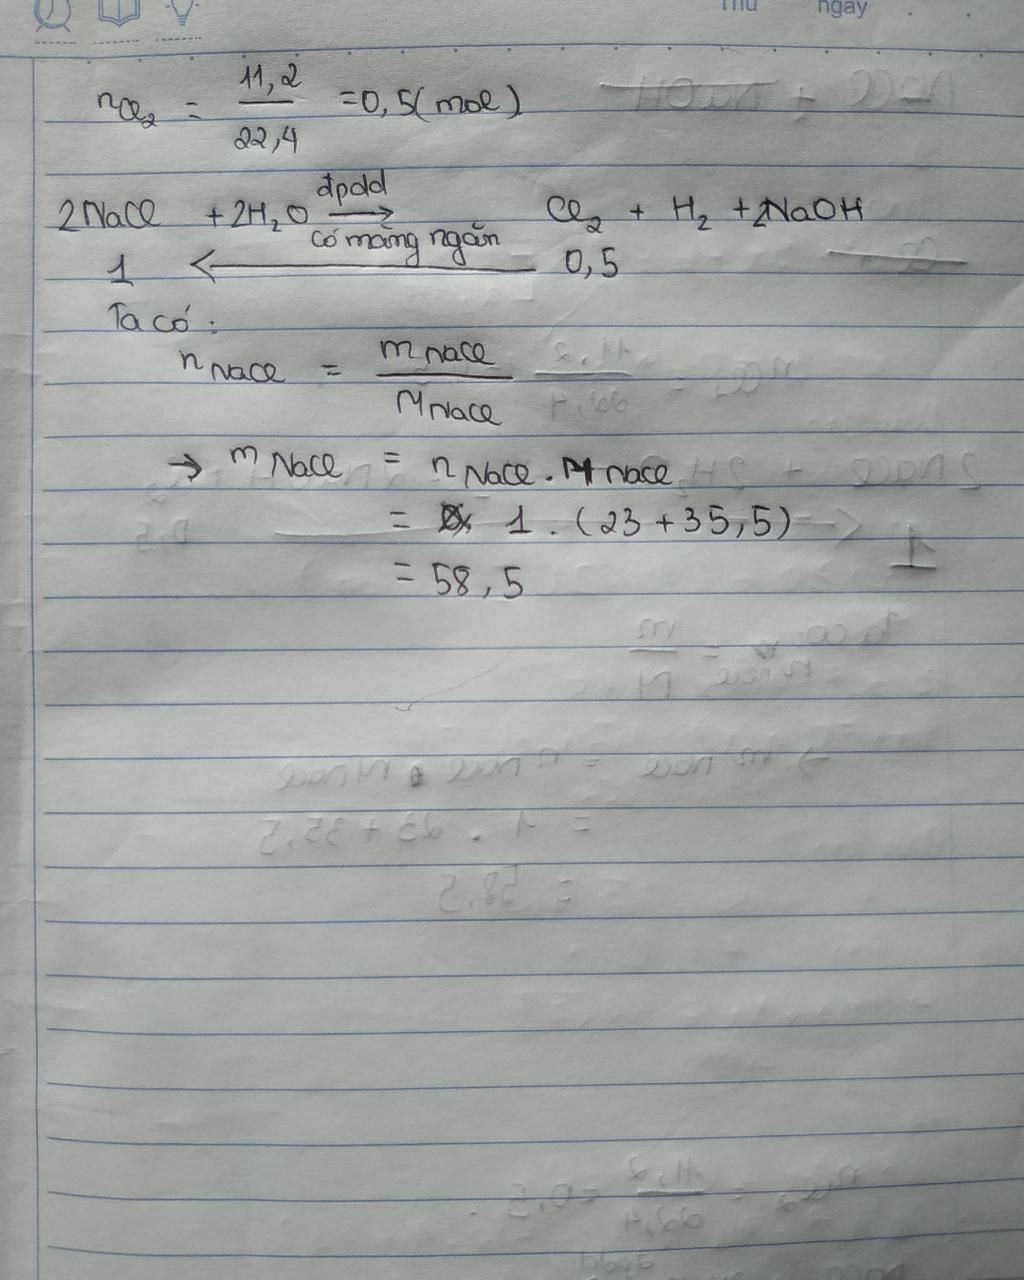 Thứ ngày
nCl₂ = 11,2 / 22,4 = 0,5 (mol)
2NaCl + 2H₂O đpdd → có màng ngăn Cl₂ + H₂ + 2NaOH
1 ← 0,5
Ta có:
nNaCl = mNaCl / MNaCl
→ mNaCl = nNaCl . MNaCl
= 1 . (23 + 35,5)
= 58,5